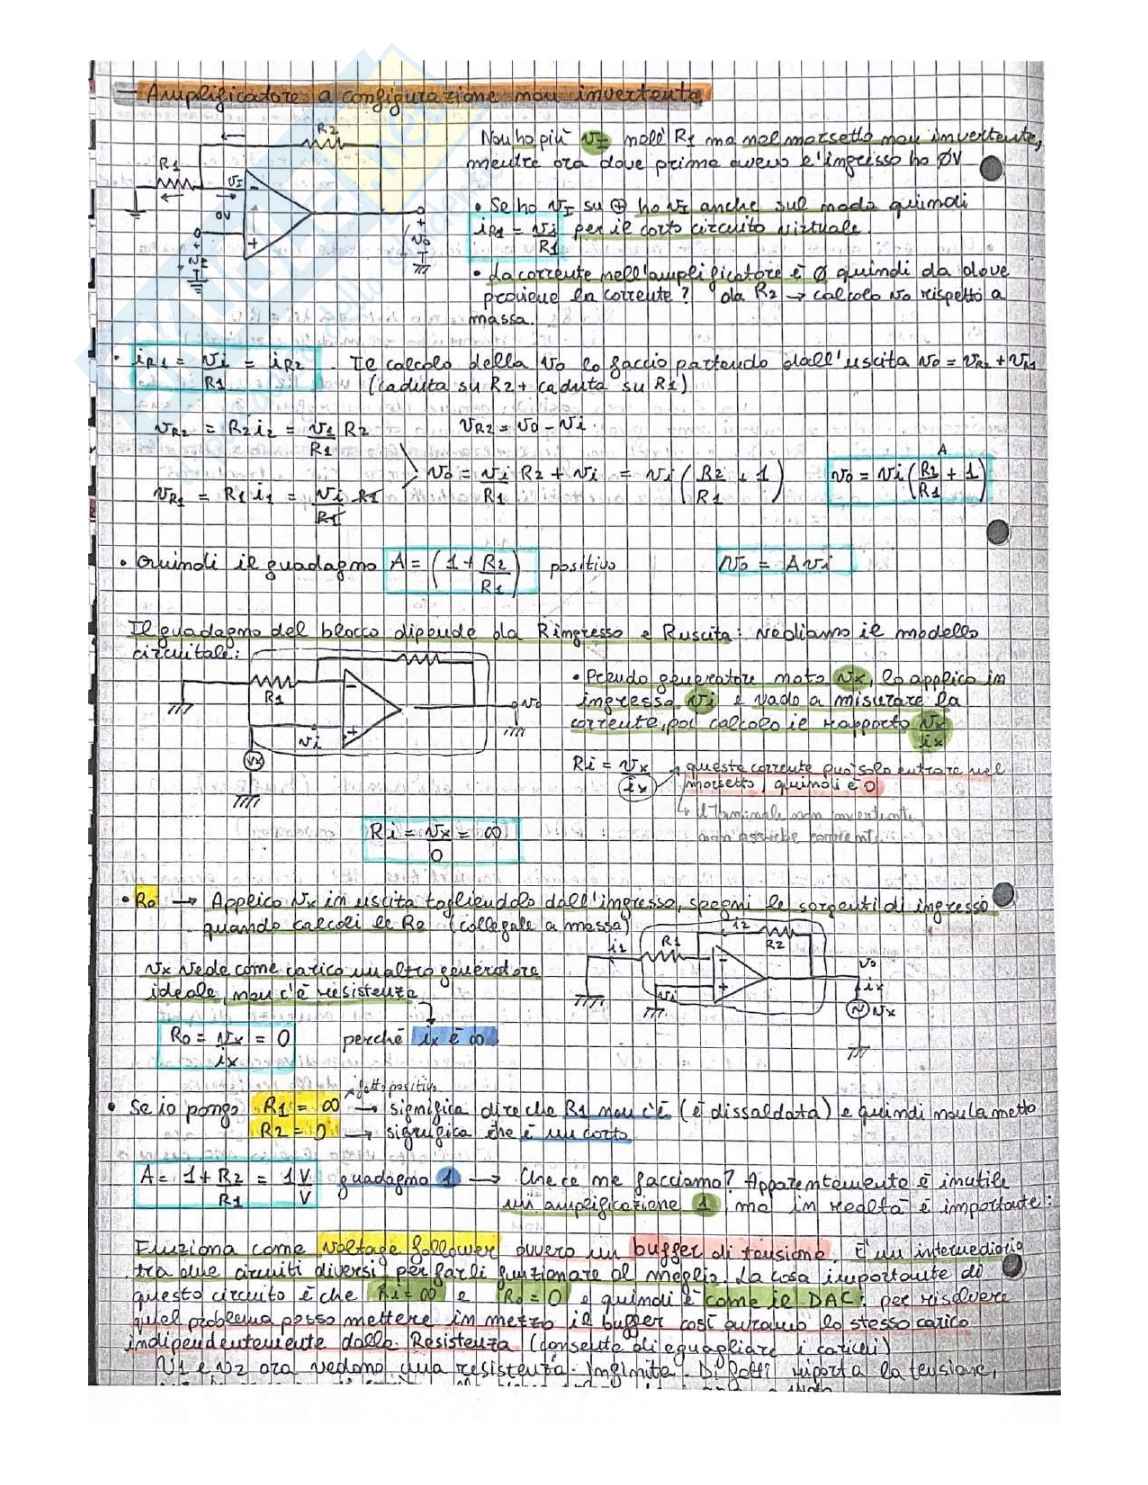 — Amplificatore a configurazione non invertente
Non ho più vI nell'R1 ma nel morsetto non invertente,
mentre ora dove prima avevo l'ingresso ho 0V
R2
R1
vI
0V
vo
• Se ho vI su ⊕ ho vI anche sul nodo quindi
iR1 = vi/R1 per il corto circuito virtuale.
• La corrente nell'amplificatore è 0 quindi da dove
proviene la corrente? da R2 → calcolo vo rispetto a
massa.
• iR1 = vi/R1 = iR2. Il calcolo della vo lo faccio partendo dall'uscita vo = vR2 + vR1
(caduta su R2 + caduta su R1)
vR2 = R2 i2 = vi/R1 R2 vR2 = vo - vi
vo = vi/R1 R2 + vi = vi (R2/R1 + 1) vo = vi (R2/R1 + 1) A
vR1 = R1 i1 = vi/R1 R1
• Quindi il guadagno A = (1 + R2/R1) positivo vo = A vi
Il guadagno del blocco dipende da Ringresso e Ruscita: vediamo il modello
circuitale:
R1
vi
vx
vo
• Prendo generatore noto vx, lo applico in
ingresso vi e vado a misurare la
corrente, poi calcolo il rapporto vx/ix
Ri = vx/ix → questa corrente può solo entrare nel
morsetto, quindi è 0
↳ il terminale non invertente
non assorbe corrente
Ri = vx/0 = ∞
• Ro → Applico vx in uscita togliendolo dall'ingresso, spegni le sorgenti di ingresso
quando calcoli le Ro (collegale a massa)
i1 R1 i2 R2
vi
vo
ix
vx
vx vede come carico un altro generatore
ideale, non c'è resistenza
Ro = vx/ix = 0 perché ix è ∞
• Se io pongo R1 = ∞ → significa dire che R1 non c'è (è dissaldata) e quindi non la metto
R2 = 0 → significa che è un corto
A = 1 + R2/R1 = 1 V/V guadagno 1 → Che ce ne facciamo? Apparentemente è inutile
un'amplificazione 1 ma in realtà è importante:
Funziona come voltage follower ovvero un buffer di tensione. È un intermediario
tra due circuiti diversi per farli funzionare al meglio. La cosa importante di
questo circuito è che Ri = ∞ e Ro = 0 e quindi è come il DAC: per risolvere
quel problema posso mettere in mezzo il buffer così avranno lo stesso carico
indipendentemente dalla Resistenza (consente di eguagliare i carichi)
V1 e V2 ora vedono una resistenza infinita. Di fatti riporta la tensione,